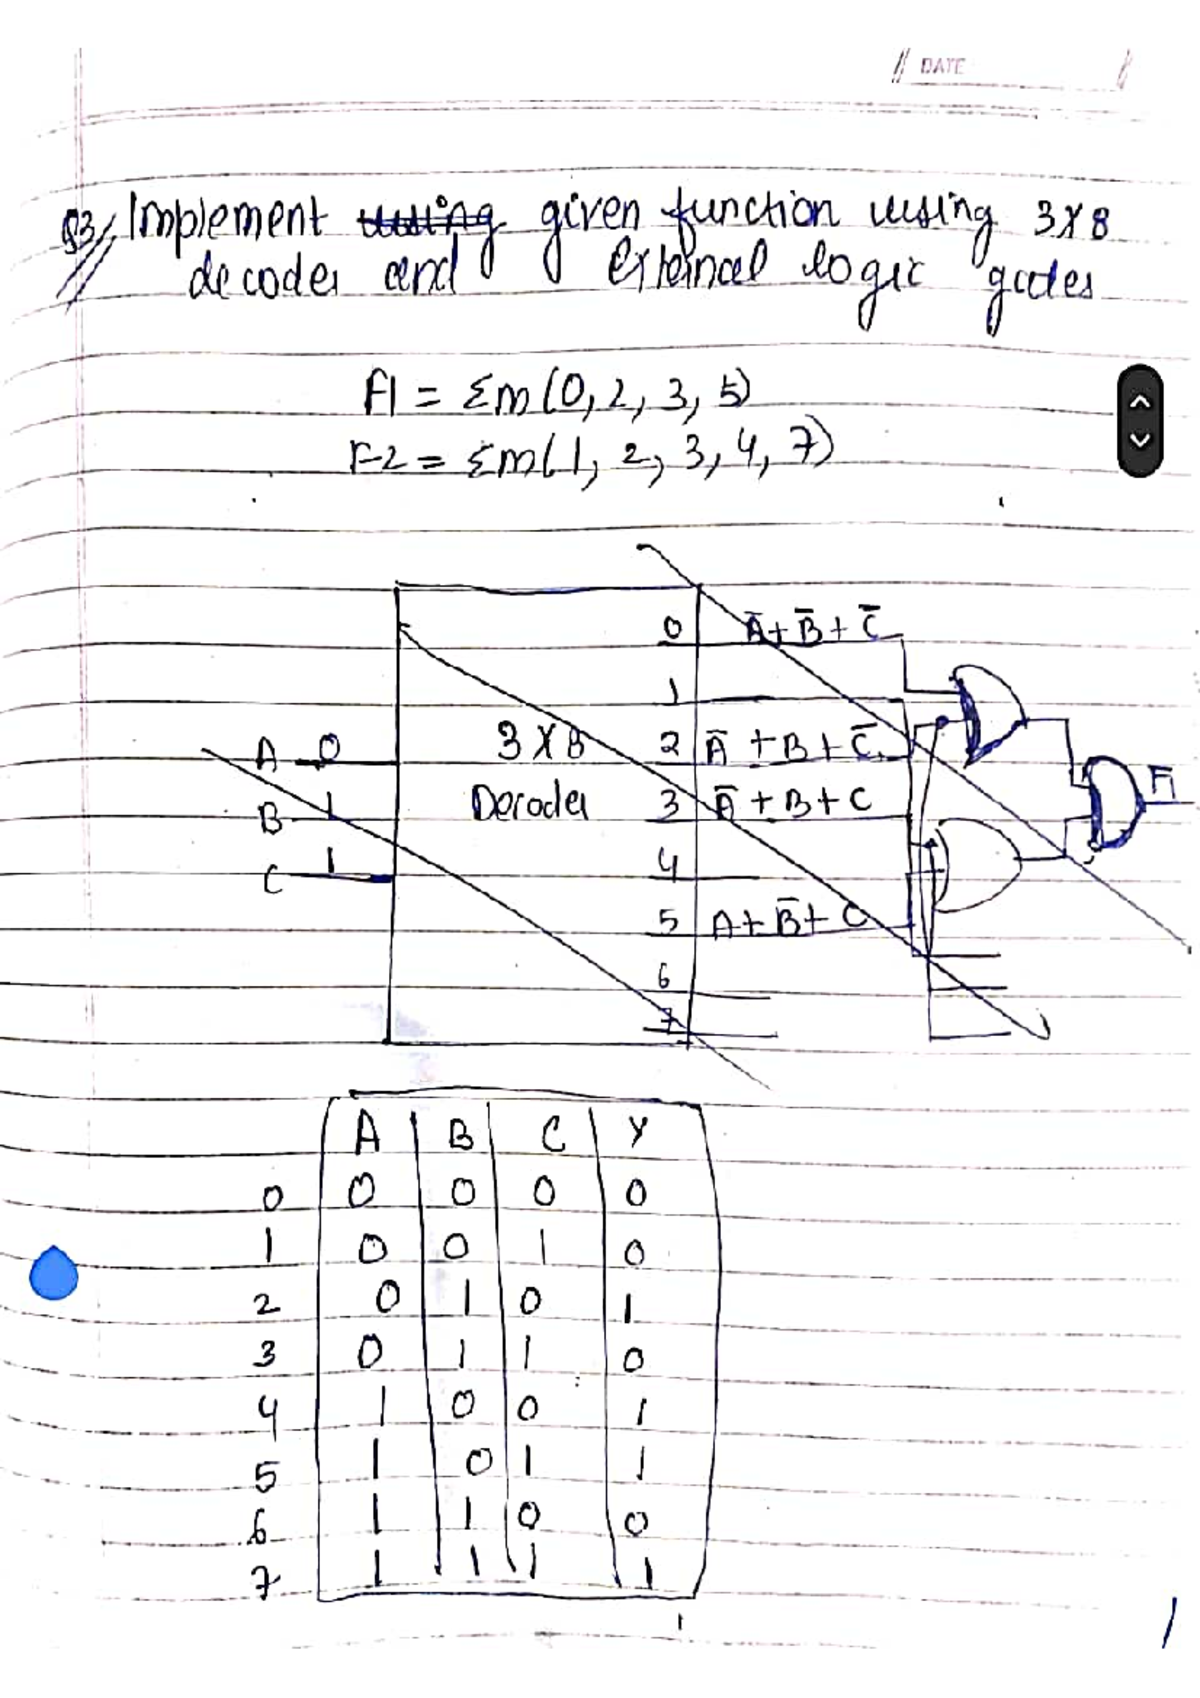 DATE
Q3 Implement using given function using 3X8
decoder and external logic gates
F1 = Σm(0, 2, 3, 5)
F2 = Σm(1, 2, 3, 4, 7)
0 Ā+B̄+C̄
1
A 0 3X8 2 Ā+B+C̄ F1
B 1 Decoder 3 Ā+B+C
C 1 4
5 A+B̄+C
6
7
A B C Y
0 0 0 0 0
1 0 0 1 0
2 0 1 0 1
3 0 1 1 0
4 1 0 0 1
5 1 0 1 1
6 1 1 0 0
7 1 1 1 1